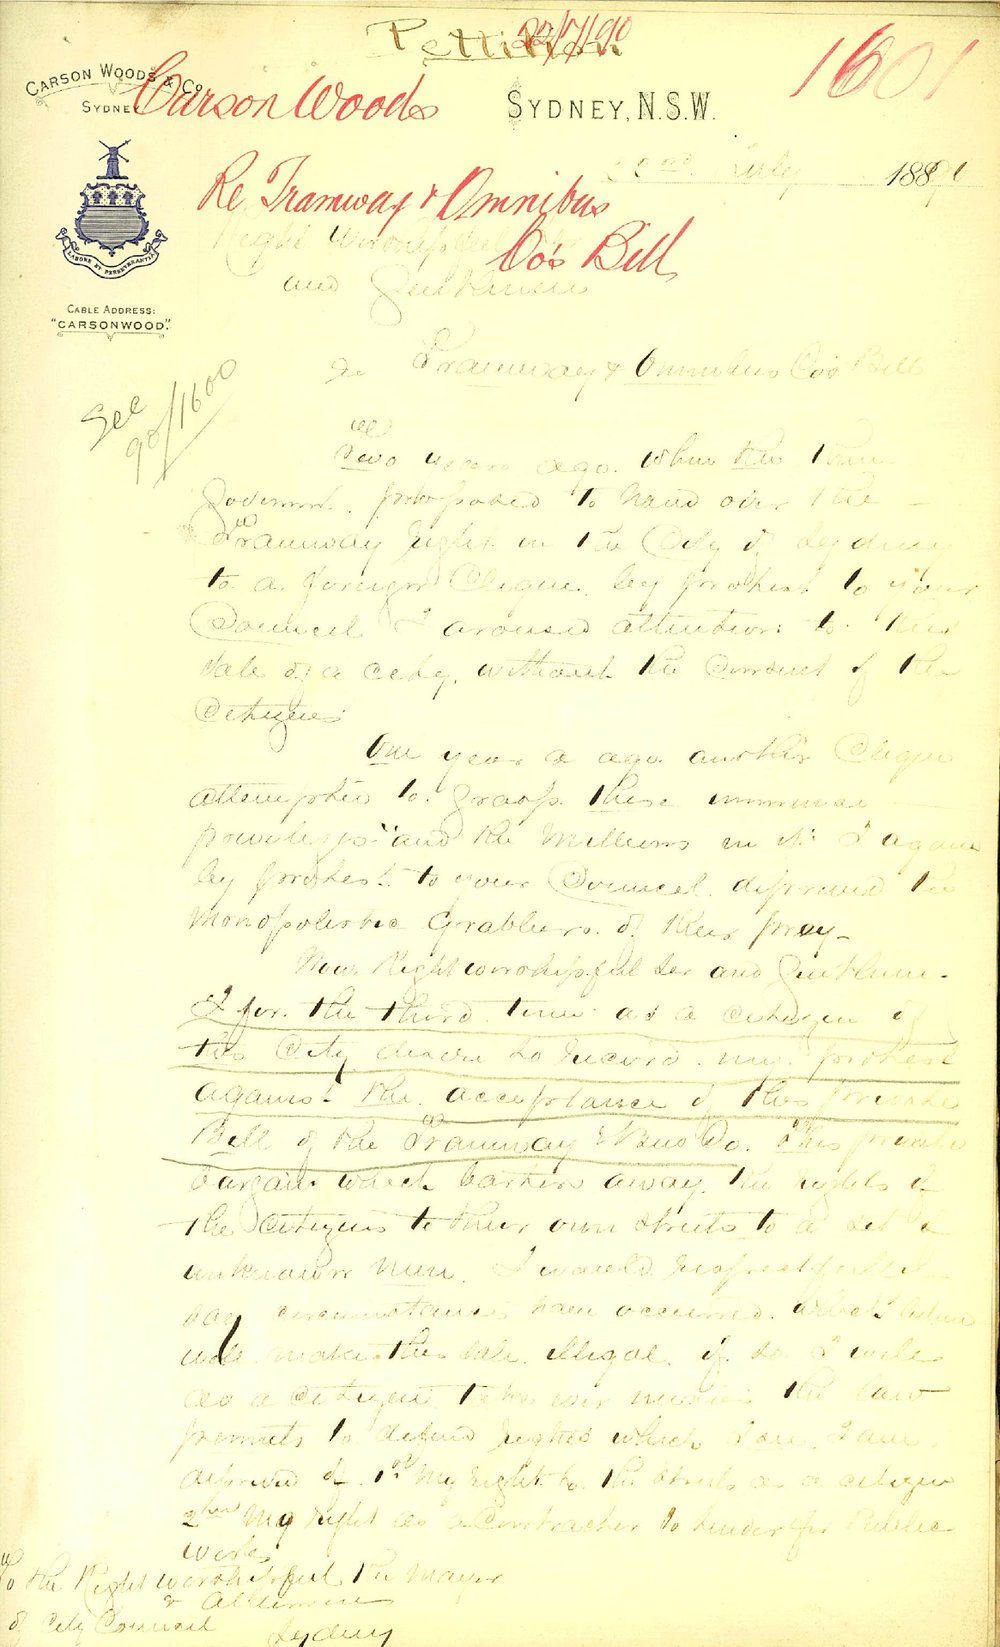 Pettition
22/7/90
1601
CARSON WOODS & Co
SYDNEY
Carson Woods
SYDNEY, N.S.W.
22nd July 1890
Re Tramway & Omnibus
Co's Bill
LABORE ET PERSEVERANTIA
Right Worshipful Sir
and Gentlemen
CABLE ADDRESS:
"CARSONWOOD."
See
90/1600
In Tramway & Omnibus Co's Bill
Two years ago. when the then
Governmt. proposed to hand over the
Tramway right in the City of Sydney
to a foreign Clique. by protest to your
Council I aroused attention to this
sale of a city. without the consent of the
Citizens
One year a ago another Clique
attempted to grasp these immense
privileges "and the Millions in it" I again
by protest to your Council deprived the
Monopolistic Grabbers of their prey -
Now Right worshipful Sir and Gentlemen.
I for the third time as a citizen of
this City desire to record my protest
against the acceptance of this private
Bill of the Tramway & Bus Co. This private
bargain which barters away the rights of
the citizens to their own streets to a set of
unknown men. I would respectfully
say circumstances have occurred which
will make this sale illegal if so I will
as a citizen take every means the law
permits to defend rights which I am
deprived of 1st My right to the streets as a citizen
2nd My right as a Contractor to tender for Public
Works
To the Right worshipful the Mayor
& Aldermen
of City Council
Sydney